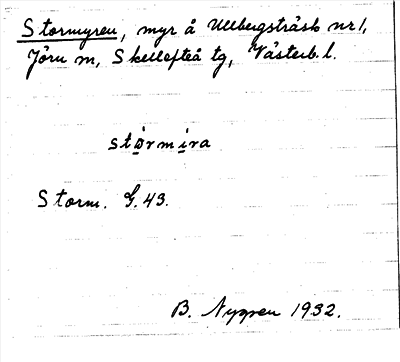 Stormyren, myr å Ullbergsträsk nr 1,
Jörn sn, Skellefteå tg, Västerb. l.
stormira
Storm. G. 43.
B. Nygren 1932.